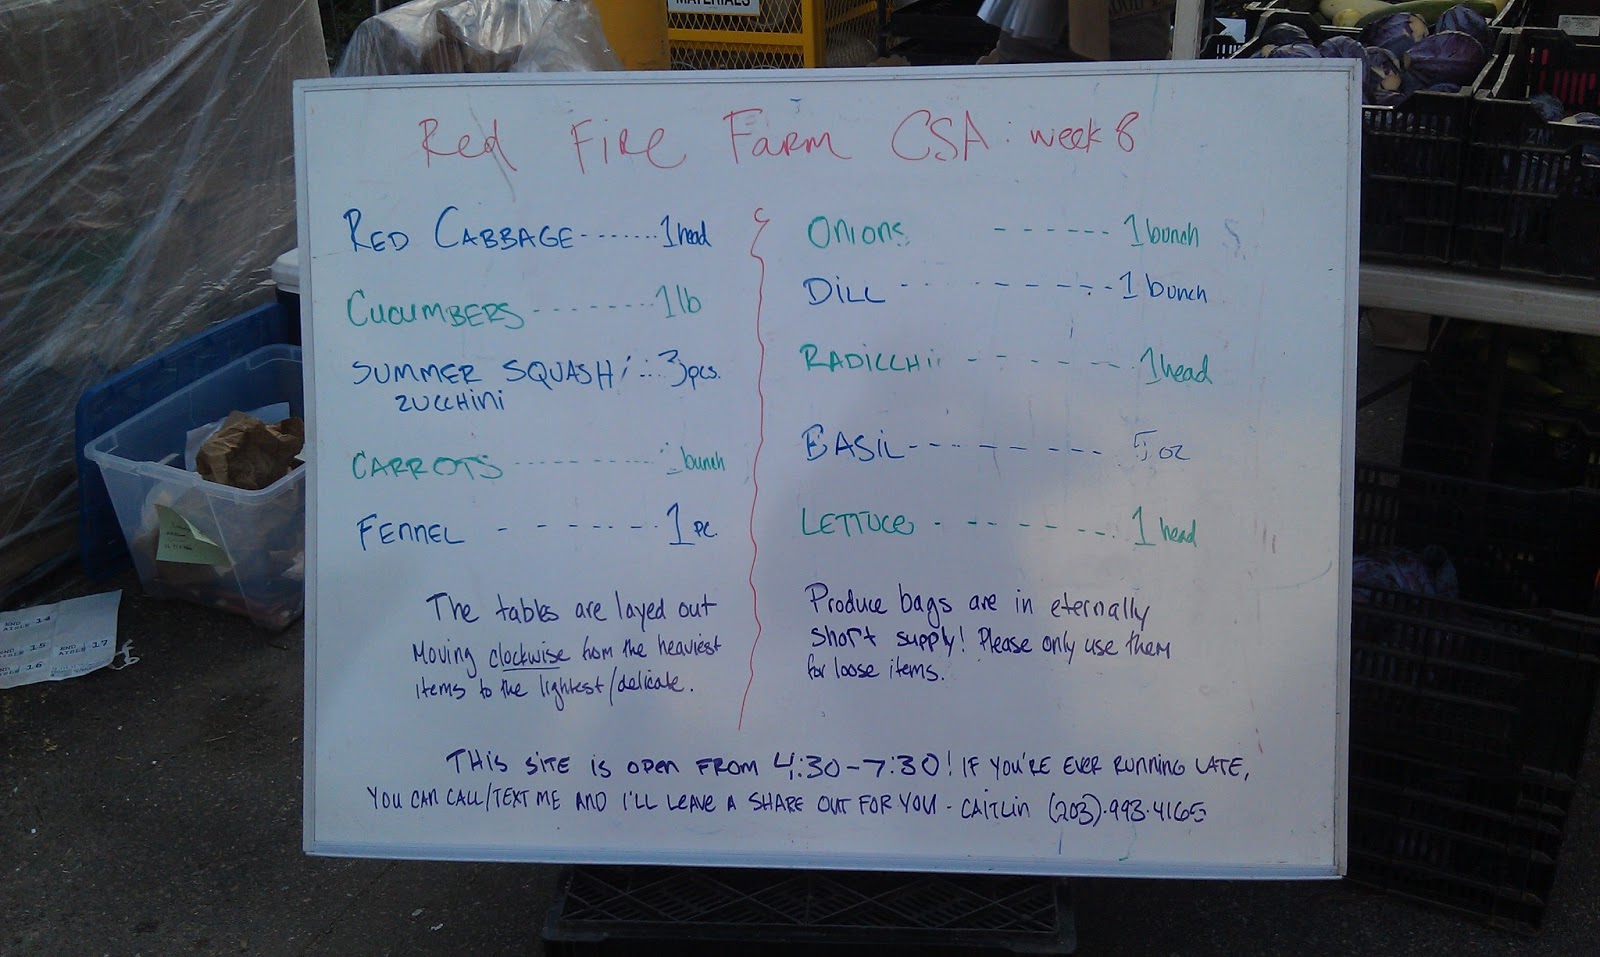 MATERIALS
Red Fire Farm CSA: week 8
RED CABBAGE ------- 1 head
CUCUMBERS -------- 1 lb
SUMMER SQUASH/ ... 3 pcs.
ZUCCHINI
CARROTS ---------- 1 bunch
FENNEL - - - - - - - 1 PC.
The tables are layed out
Moving clockwise from the heaviest
items to the lightest/delicate.
Onions - - - - - - 1 bunch
DILL - - - - - - - - 1 bunch
RADICCHii - - - - - - 1 head
BASIL - - - - - - - - 5 oz
LETTUCE - - - - - - - 1 head
Produce bags are in eternally
short supply! Please only use them
for loose items.
THIS SITE IS OPEN FROM 4:30-7:30! IF YOU'RE EVER RUNNING LATE,
YOU CAN CALL/TEXT ME AND I'LL LEAVE A SHARE OUT FOR YOU - CAITLIN (203)·993·4165
END AISLE 14
15
END AISLE 17
16